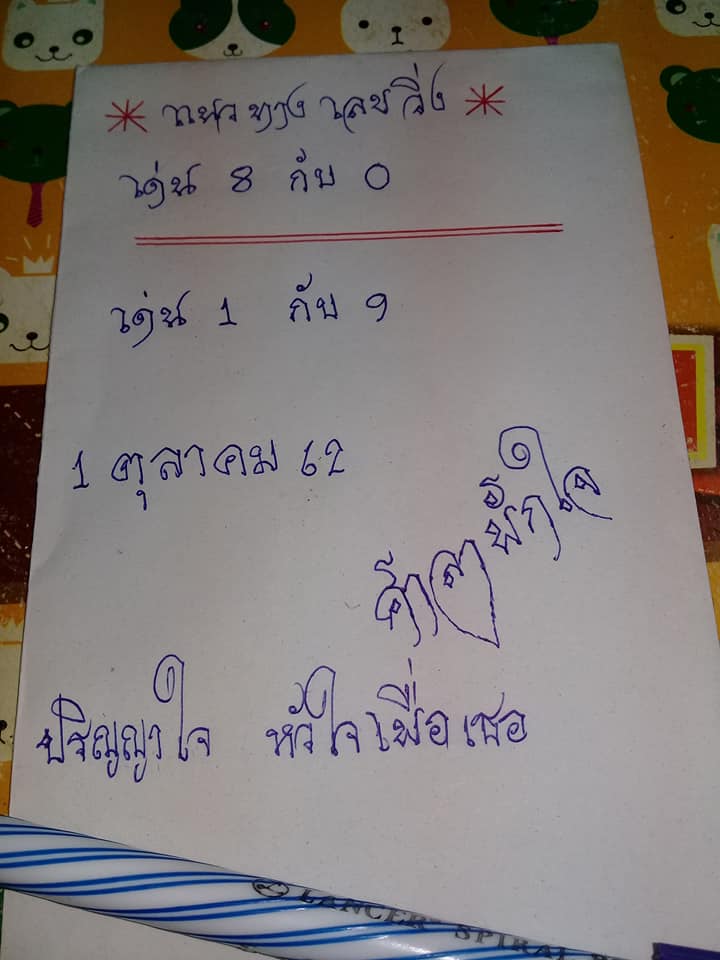 แนวทางเลขวิ่ง
เด่น 8 กับ 0
เด่น 1 กับ 9
1 ตุลาคม 62
พักใจ
ปริญญาใจ หัวใจเพื่อเธอ
LANCER SPIRAL